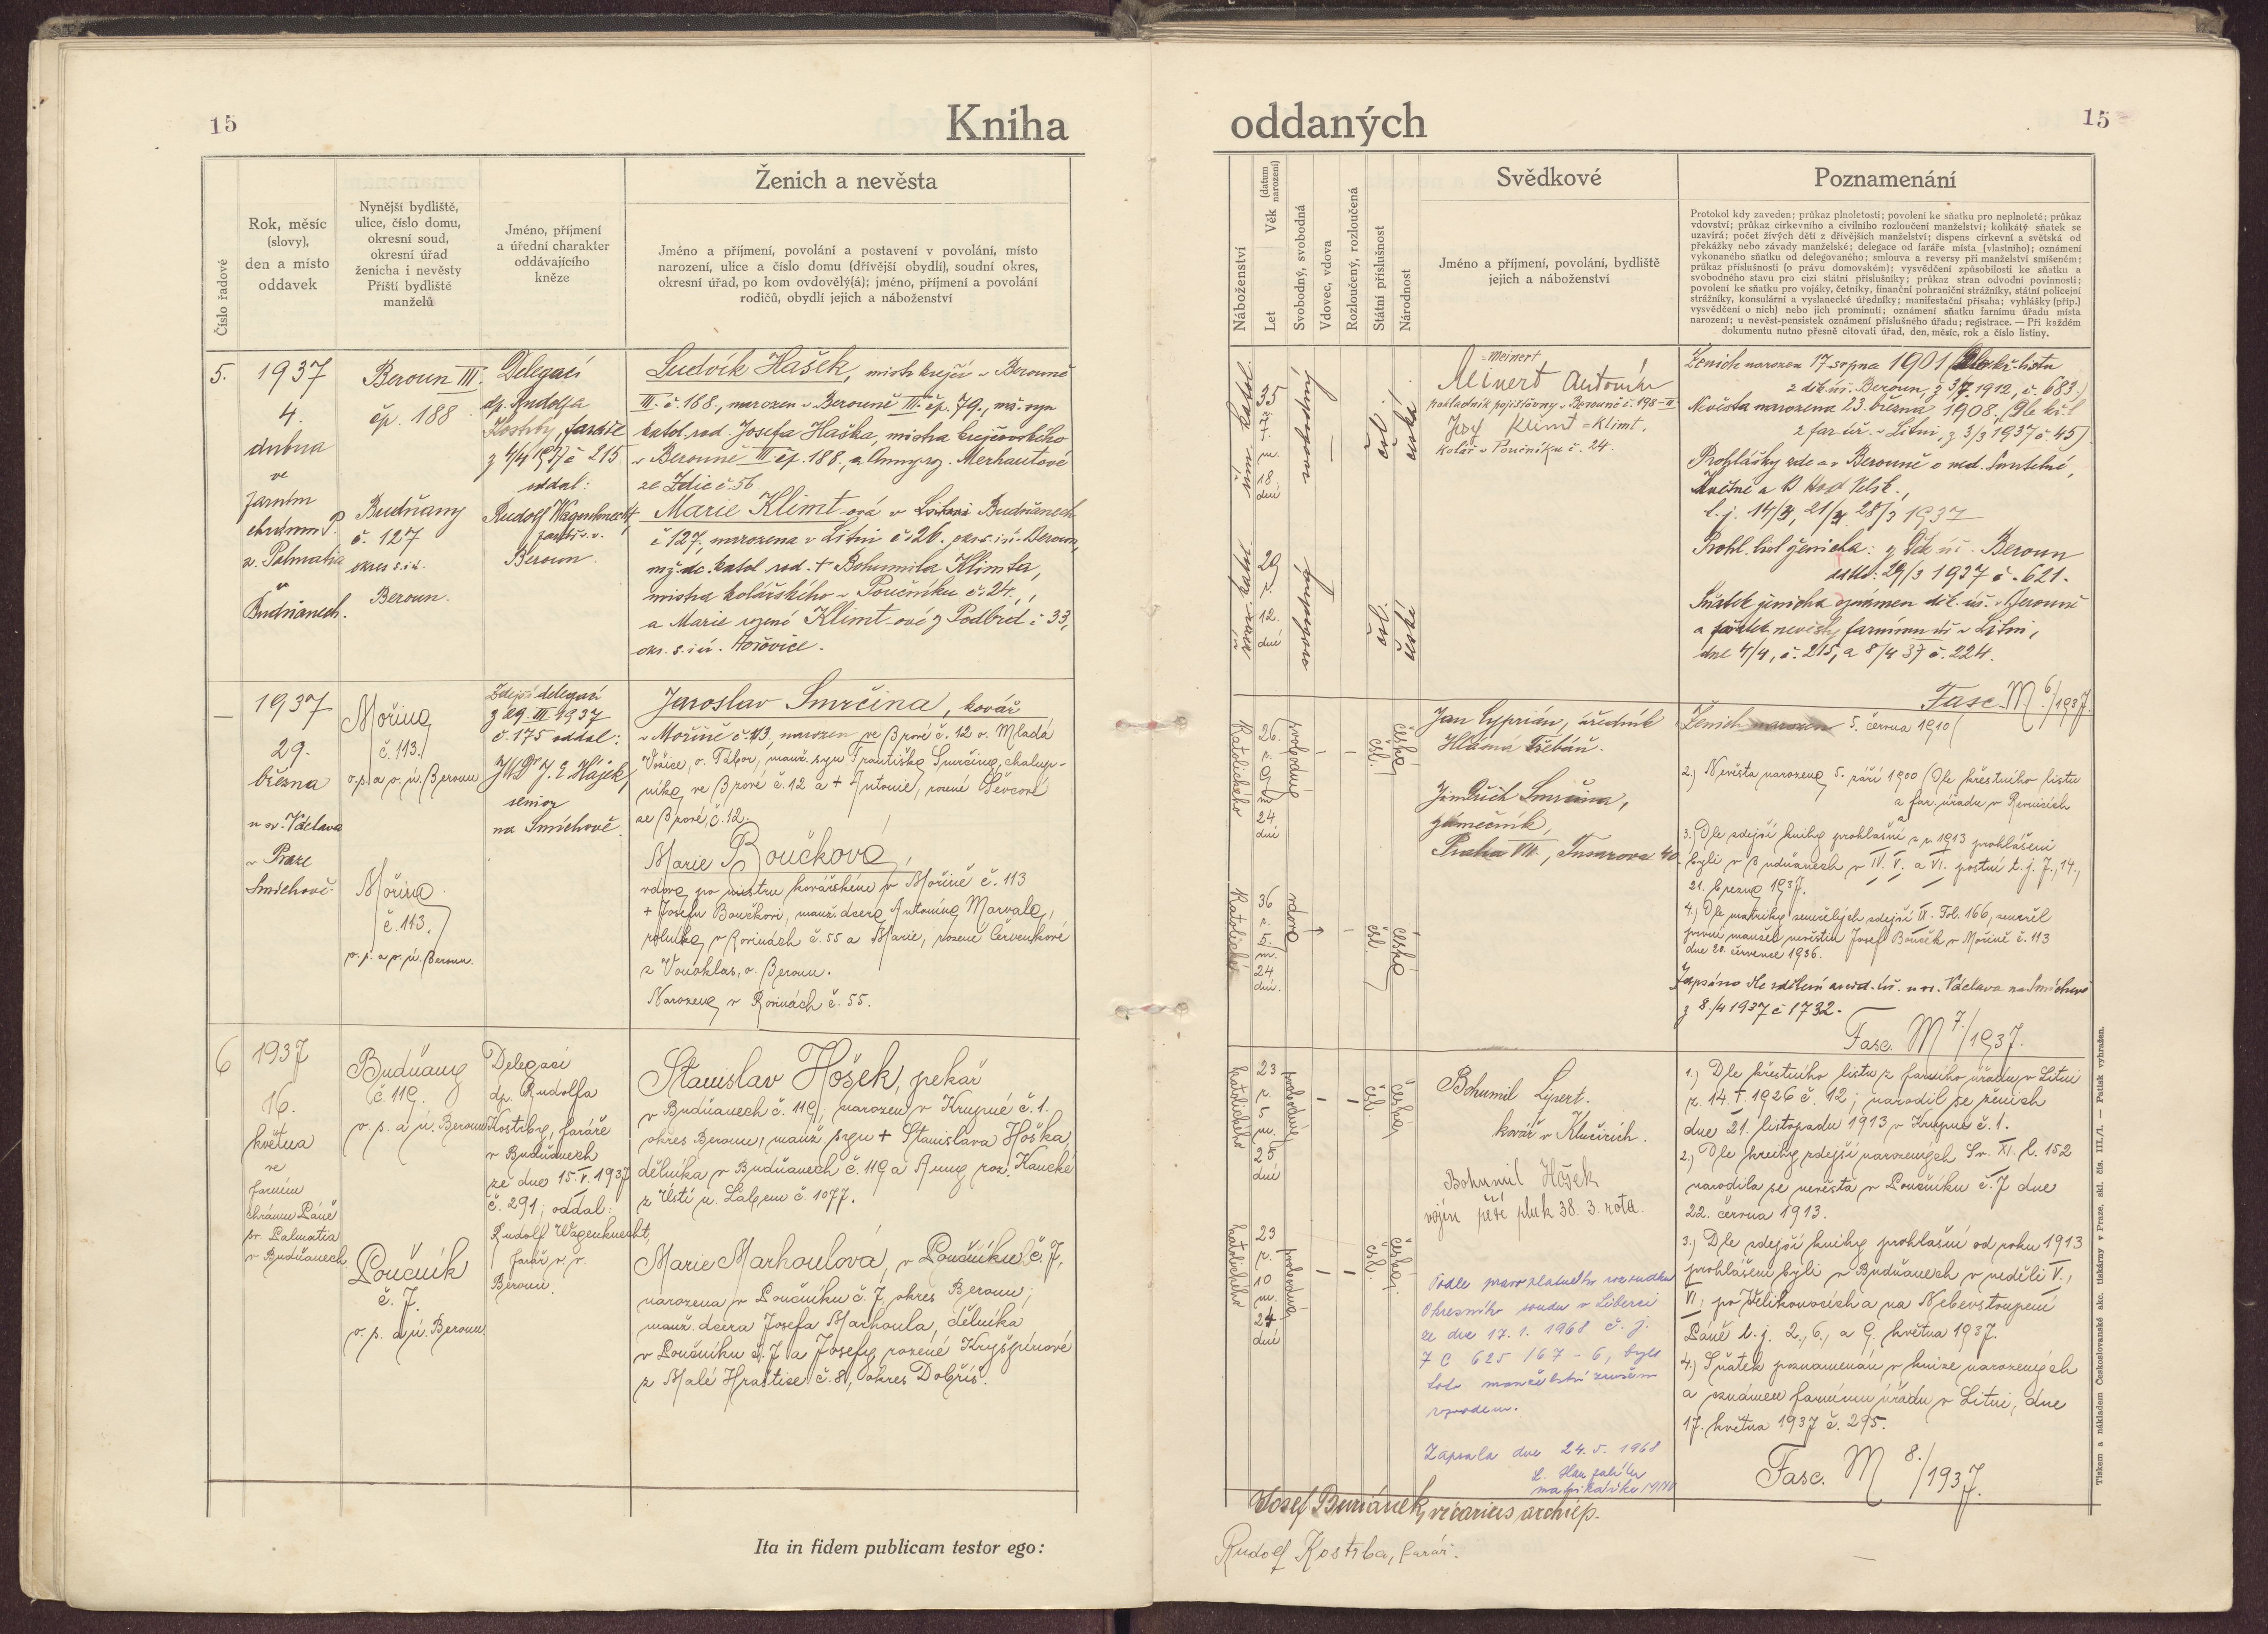 15
Kniha
Číslo řadové
Rok, měsíc
(slovy),
den a místo
oddavek
Nynější bydliště,
ulice, číslo domu,
okresní soud,
okresní úřad
ženicha i nevěsty
Příští bydliště
manželů
Jméno, příjmení
a úřední charakter
oddávajícího
kněze
Ženich a nevěsta
Jméno a příjmení, povolání a postavení v povolání, místo
narození, ulice a číslo domu (dřívější obydlí), soudní okres,
okresní úřad, po kom ovdovělý(á); jméno, příjmení a povolání
rodičů, obydlí jejich a náboženství
5.
1937
4.
dubna
ve
farním
chrámu P.
sv. Palmatia
v
Budňanech.
Beroun III.
čp. 188
Budňany
č. 127
okres s. i ú.
Beroun.
Delegací
dp. Rudolfa
Kostrby, faráře
z 4/4 1937 č 215
oddal:
Rudolf Wagenknecht,
farář v. v.
Beroun.
Ludvík Hašek, mistr krejčí v Berouně
III. č. 188, narozen v Berouně III. čp. 79., mž. syn
katol. rod. Josefa Haška, mistra krejčovského
v Berouně III čp. 188., a Anny roz. Merhautové
ze Zdic č. 56
Marie Klimt-ová v Budňanech
č 127, narozena v Litni č. 26. okr. s. i ú. Beroun,
mž. dc. katol. rod. + Bohumila Klimta,
mistra kolářského v Poučníku č. 24.,
a Marie rozené Klimt-ové z Podbrd č. 33,
okr. s. i ú. Hořovice.
—
1937
29.
března
u sv. Václava
v Praze
Smíchově.
Mořina
č. 113.
o. s. a o. ú. Beroun
Mořina
č. 113.
o. s. a o. ú. Beroun.
Zdejší delegací
z 29. III. 1937
č. 175 oddal:
JUDr J. E. Hájek,
senior
na Smíchově.
Jaroslav Smrčina, kovář
v Mořině č. 113, narozen ve Bzové č. 12 o. Mladá
Vožice, o. Tábor, manž. syn Františka Smrčiny, chalup-
níka ve Bzové č. 12 a + Antonie, rozené Ševcové
ze Bzové, č. 12.
Marie Boučková,
vdova po mistru kovářském v Mořině č. 113
+ Josefu Boučkovi, manž. dcera Antonína Marvala,
rolníka v Rovinách č. 55 a Marie, rozené Červenkové
z Vonoklas, o. Beroun.
Narozena v Rovinách č. 55.
6
1937
16.
května
ve
farním
chrámu Páně
sv. Palmatia
v Budňanech
Budňany
č. 119.
o. s. a ú. Beroun
Poučník
č. 7.
o. s. a ú. Beroun.
Delegací
dp. Rudolfa
Kostrby, faráře
v Budňanech
ze dne 15. V. 1937
č. 291, oddal:
Rudolf Wagenknecht,
farář v. v.
Beroun.
Stanislav Hošek, pekař
v Budňanech č. 119; narozen v Krupné č. 1.
okres Beroun, manž. syn + Stanislava Hoška,
dělníka v Budňanech č. 119 a Anny roz. Koucké
z Ústí n. Labem č. 1077.
Marie Marhoulová, v Poučníku č. 7,
narozena v Poučníku č. 7, okres Beroun;
manž. dcera Josefa Marhoula, dělníka
v Poučníku č. 7 a Josefy rozené Kryšpínové
z Malé Hraštice č. 8, okres Dobříš.
Ita in fidem publicam testor ego:
oddaných
15
Náboženství
Let Věk (datum narození)
Svobodný, svobodná
Vdovec, vdova
Rozloučený, rozloučená
Státní příslušnost
Národnost
Svědkové
Jméno a příjmení, povolání, bydliště
jejich a náboženství
Poznamenání
Protokol kdy zaveden; průkaz plnoletosti; povolení ke sňatku pro neplnoleté; průkaz
vdovství; průkaz církevního a civilního rozloučení manželství; kolikátý sňatek se
uzavírá; počet živých dětí z dřívějších manželství; dispens církevní a světská od
překážky nebo závady manželské; delegace od faráře místa (vlastního); oznámení
vykonaného sňatku od delegovaného; smlouva a reversy při manželství smíšeném;
průkaz příslušnosti (o právu domovském); vysvědčení způsobilosti ke sňatku a
svobodného stavu pro cizí státní příslušníky; průkaz stran odvodní povinnosti;
povolení ke sňatku pro vojáky, četníky, finanční pohraniční strážníky, státní policejní
strážníky, konsulární a vyslanecké úředníky; manifestační přísaha; vyhlášky (příp.)
vysvědčení o nich) nebo jich prominutí; oznámení sňatku farnímu úřadu místa
narození; u nevěst-pensistek oznámení příslušného úřadu; registrace. — Při každém
dokumentu nutno přesně citovati úřad, den, měsíc, rok a číslo listiny.
řím. katol.
35
r.
7
m.
18
dní
svobodný
—
čsl.
česká
=Meinert
Meinert Antonín
pokladník pojišťovny v Berouně č. 198-II
Josef Klimt = Klimt.
kolář v Poučníku č. 24.
řím. katol.
29
r.
12.
dní
svobodná
čsl.
česká
Ženich narozen 17. srpna 1901 (dle kř. listu
z děk. úř. Beroun, z 3/7. 1912, č. 683)
Nevěsta narozena 23. března 1908. (dle kř. l
z far. úř. v Litni, z 3/3 1937 č. 45)
Prohlášky zde a v Berouně o ned. Smrtelné,
Květné a B. Hod Velik.,
t. j. 14/3, 21/3, 28/3 1937
Prohl. list ženicha: z děk. úř. Beroun
29/3 1937 č. 621.
Sňatek ženicha oznámen děk. úř. v Berouně
a nevěsty farnímu úř. v Litni,
dne 4/4, č. 215, a 8/4 37 č. 224.
Fasc. M 6/1937.
Katolického
26.
r.
9
m
24
dní
svobodný
—
—
čsl.
česká
Jan Cyprián, úředník
Hlásná Třebáň.
Jindřich Smrčina,
zámečník,
Praha VII, Tusarova 40
Katolické
36
r.
5.
m.
24
dní.
vdova
—
čsl.
česká
Ženich narozen 5. června 1910
2.) Nevěsta narozena 5. září 1900 (Dle křestního listu
z far. úřadu v Řevnicích
3. Dle zdejší knihy prohlášní z r. 1913 prohlášeni
byli v Budňanech v IV. V. a VI. postní t. j. 7., 14.,
21. března 1937.
4.) Dle matriky zemřelých zdejší VI. Fol. 166, zemřel
první manžel nevěstin Josef Bouček v Mořině č. 113
dne 20. července 1936.
Zapsáno dle sdělení úř. u sv. Václava na Smíchově
z 8./4 1937 č 1732.
Fasc. M 7./1937.
katolického
23
r.
5
m.
25
dní
svobodný
—
—
čsl.
česká
Bohumil Lipert.
kovář v Klučicích.
Bohumil Hošek
vojín pěší pluk 38. 3. rota.
katolického
23
r.
10
m.
24
dní
svobodná
—
—
čsl.
česká
Podle pravoplatného rozsudku
Okresního soudu v Liberci
ze dne 17. 1. 1968 č. j.
7 C 625/67-6, bylo
toto manželství zrušeno
rozvodem.
Zapsala dne 24. 5. 1968
1.) Dle křestního listu z farního úřadu v Litni
z. 14. I. 1926 č. 12; narodil se ženich
dne 21. listopadu 1913 v Krupné č. 1.
2.) Dle knihy zdejší narozených Sv. XI. l. 152
narodila se nevěsta v Poučníku č. 7 dne
22. června 1913.
3.) Dle zdejší knihy prohlášní od roku 1913
prohlášeni byli v Budňanech v neděli V.,
VI. po Velikonocích a na Nebevstoupení
Páně t. j. 2., 6., a 9. května 1937.
4.) Sňatek poznamenán v knize narozených
a oznámen farnímu úřadu v Litni, dne
17. května 1937 č. 295.
Fasc. M 8./1937.
Josef Buriánek, vicarius archiep.
Rudolf Kostrba, farář.
Tiskem a nákladem Českoslovanské akc. tiskárny v Praze. skl. čís. III./1. — Patisk vyhražen.